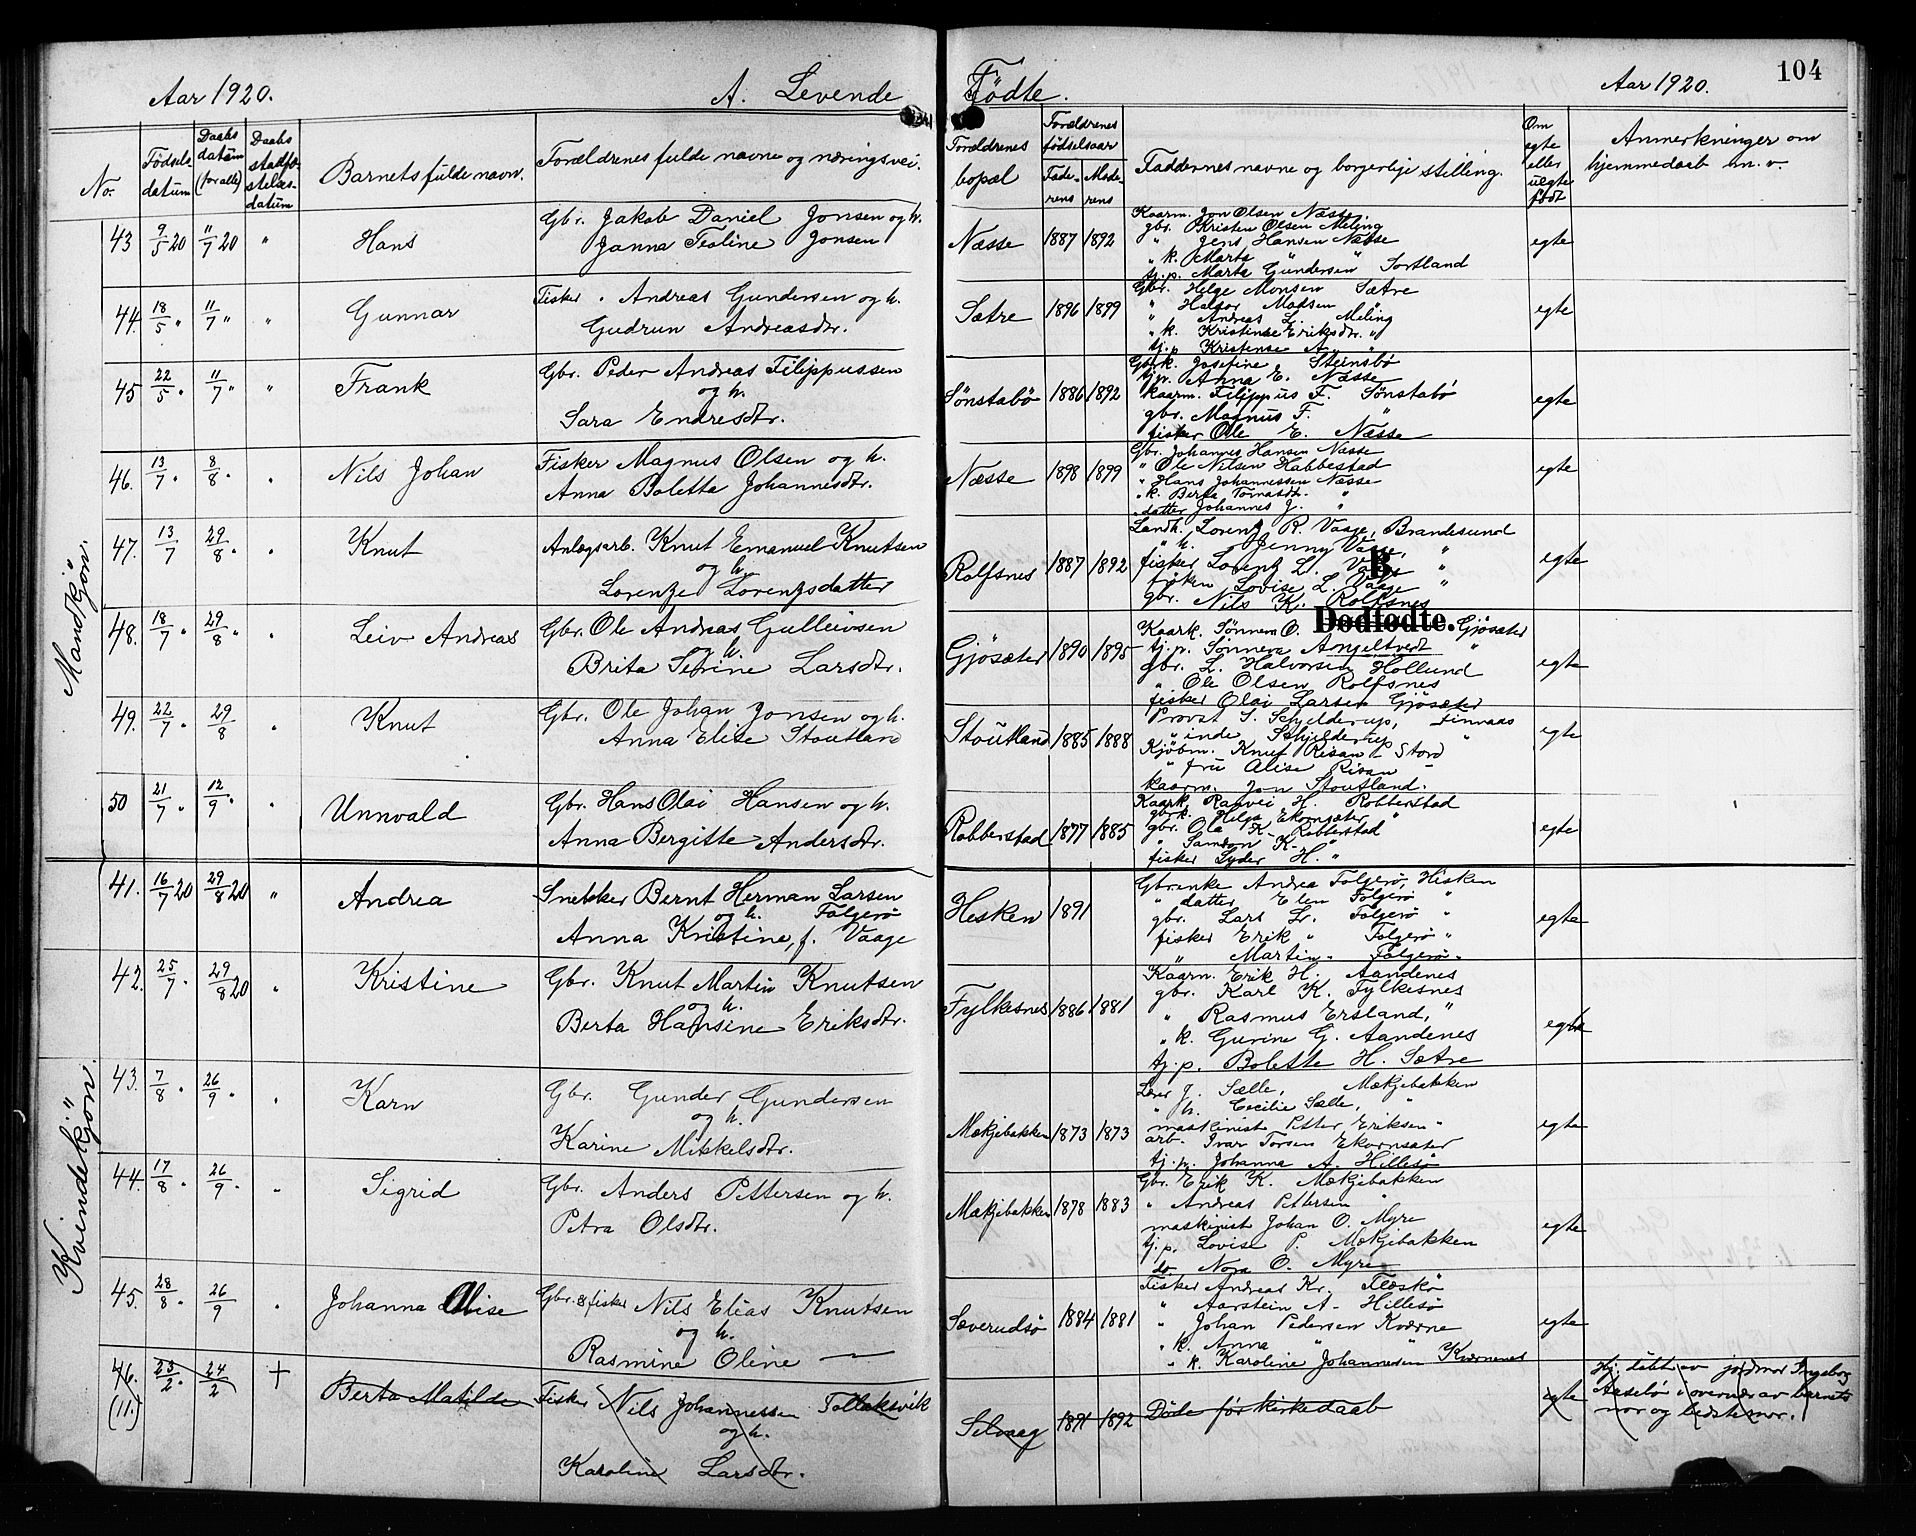 Aar 1920. A. Levende Fødte. Aar 1920. 104
No. Fødselsdatum Daabsdatum (for alle) Daabs stadfæstelsesdatum Barnets fulde navn. Forældrenes fulde navne og næringsvei. Forældrenes bopæl Forældrenes fødselsaar Faderens Moderens Faddernes navne og borgerlige stilling. Om egte eller uegte født Anmerkninger om hjemmedaab m. v.
Mandkjøn.
43 9/5 20 11/7 20 " Hans Gbr. Jakob Daniel Jonsen og h. Næsse 1887 1892 Kaarm. Jon Olsen Næsse egte
Janna Tealine Jonsen gbr. Kristen Olsen Meling
" Jens Hansen Næsse
" k. Marta " "
tj.p. Marta Gundersen Sortland
44. 18/5 " 11/7 " " Gunnar Fisker Andreas Gundersen og h. Sætre 1896 1899 Gbr. Helge Monsen Sætre egte
Gudrun Andreasdtr. " Halvor Madsen "
" Andreas L. Meling
" k. Kristense Eriksdtr. "
tj.p. Kristense A. "
45 22/5 " 11/7 " " Frank Gbr. Peder Andreas Filippussen Sønstabø 1886 1892 Gbrk. Josefine Steinsbø egte
og h. tj.p. Anna E. Næsse
Sara Endresdtr. kaarm. Filippus F. Sønstabø
gbr. Magnus F. "
fisker Ole E. Næsse
46. 13/7 " 8/8 " " Nils Johan Fisker Magnus Olsen og h. Næsse 1898 1899 Gbr. Johannes Hansen Næsse egte
Anna Boletta Johannesdtr. " Ole Nilsen Habbestad
" Hans Johannessen Næsse
" k. Berta Tomasdtr. "
datter Johannes J. "
47. 13/7 29/8 " " Knut Anlægsarb. Knut Emanuel Knutsen Rolfsnes 1887 1892 Landh. Lorentz R. Vaage, Brandesund egte
og h. " h. Jenny Vaage, "
Lorenze Lorenzsdatter fisker Lorentz L. Vaage "
B.
frøken Lovise L. Vaage "
gbr. Nils K. Rolfsnes
48. 18/7 " 29/8 " " Leiv Andreas Gbr. Ole Andreas Gulleivsen Gjøsæter 1890 1895 Kaark. Sønneva O. Gjøsæter egte
Dødfødte.
og h. tj.p. Sønneva Angeltvedt "
Brita Serine Larsdtr. gbr. L. Halvorsen Hollund
" Ole Olsen Rolfsnes
fisker Olai Larsen Gjøsæter
49. 22/7 " 29/8 " Knut Gbr. Ole Johan Jonsen og h. Stoutland 1885 1888 Provst S. Schjelderup, Finnaas egte
Anna Elise Stoutland " inde Schjelderup "
Kjøbm. Knut Risan Stord
" fru Alise Risan "
kaarm. Jon Stoutland.
50 21/7 " 12/9 " " Unnvald Gbr. Hans Olai Hansen og h. Robberstad 1877 1885 Kaark. Ranvei H. Robberstad egte
Anna Bergitte Andersdtr. gbrk. Helga Ekornsæter "
gbr. Ola K. Robberstad
" Samson K. "
fisker Syder H. "
Kvindekjøn.
41. 16/7 20 29/8 20 " Andrea Snekker Bernt Herman Larsen Hesken 1891 Gbr.enke Andrea Folgerø, Hisken egte
og h. Folgerø " datter Elen Folgerø "
Anna Kristine, f. Vaage gbr. Lars L. Folgerø "
fisker Erik " Folgerø "
" Martin " Folgerø "
42. 25/7 29/8 20 " Kristine Gbr. Knut Martin Knutsen Fylkesnes 1886 1881 Kaarm. Erik H. Aandenes egte
og h. gbr. Karl K. Fylkesnes
Berta Hansine Eriksdtr. " Rasmus Ersland, "
" k. Gurine G. Aandenes
tj.p. Bolette H. Sætre
43. 7/8 " 26/9 " " Karn Gbr. Gunder Gundersen Mækjebakken 1873 1873 Lærer J. Sælle, Mækjebakken egte
og h. " h. Cecilie Sælle, "
Karine Mikkelsdtr. maskinist Petter Eriksen "
arb. Ivar Torsen Ekornsæter
tj.p. Johanna A. Hillesø
44. 17/8 " 26/9 " " Sigrid Gbr. Anders Pettersen og h. Mækjebakken 1878 1883 Gbr. Erik K. Mækjebakken egte
Petra Olsdtr. " Andreas Pettersen "
maskinist Johan O. Myre
tj.p. Lovise P. Mækjebakken
do. Nora O. Myre
45. 28/8 " 26/9 " Johanna Alise Gbr. & fisker Nils Elias Knutsen Sæverudsø 1884 1881 Fisker Andreas Kr. Flæskø egte
og h. " Aarstein A. Hillesø
Rasmine Oline — " Johan Pedersen Kværne
" k. Anna " "
" k. Karoline Johannesen Kværnenes
46. (11.) 23/2 " 24/2 + Berta Matilde Fisker Nils Johannessen Tollaksvik Selvaag 1891 1892 Døde før kirkedaab egte Hj. døbt av jordmor Ingeborg
og h. Aasebø i overvær av barnets
Karoline Larsdtr. mor og bedstemor.